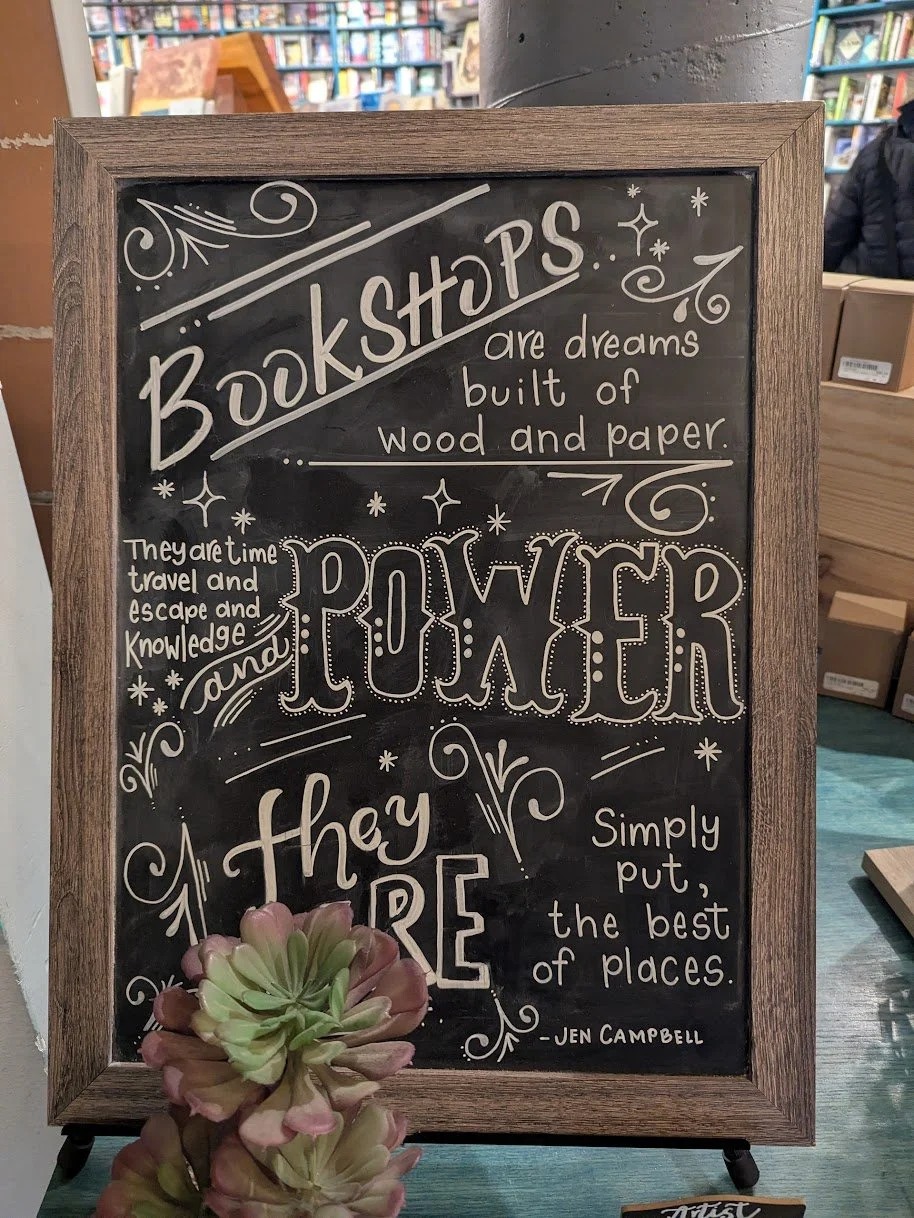 BookSHOPS
are dreams
built of
wood and paper.
They are time
travel and
escape and
Knowledge
and
POWER
they
RE
Simply
put,
the best
of places.
-JEN CAMPBELL
Artist